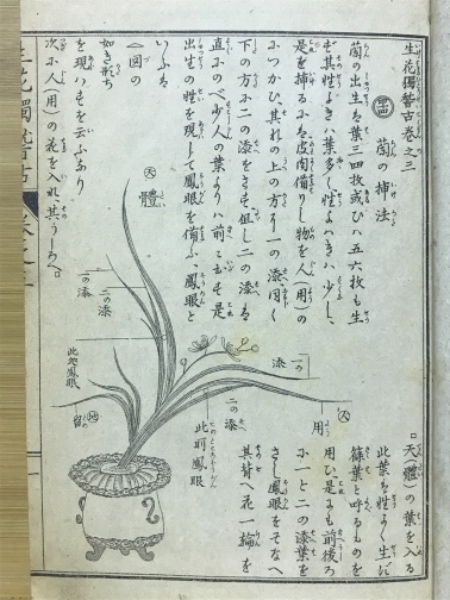 生花獨稽古巻之三
蘭の挿法
蘭の出生を葉三四枚或ひハ五六枚も生
ぜ其性よきハ葉多し性よハきハ少し、
是を挿るにハ皮肉備りし物を人(用)の
につかひ、其れの上の方より一の添、同く
下の方に二の添をさす但し二の添ハ
直にのべ少し人の葉よりハ前に出す是
出生の性を現して鳳眼を備ふ、鳳眼と
いふハ
△図の
如き形ち
を現ハすを云ふなり
次に人(用)の花を入れ其うしろへ。
天(體)の葉を入る
此葉を性よく生じ
篠葉と呼るものを
用ひ是にも前後ろ
に一と二の添葉を
さし鳳眼をそなへ
其前へ花一輪を
天
體
一の添
二の添
此処鳳眼
地
留
一の添
人
用
二の添
此所鳳眼